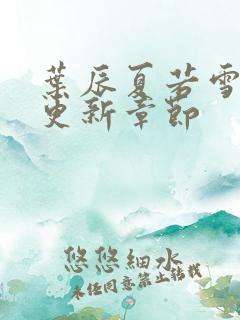 葉辰夏若雪
更新章節
悠悠細水
未经同意禁止转载